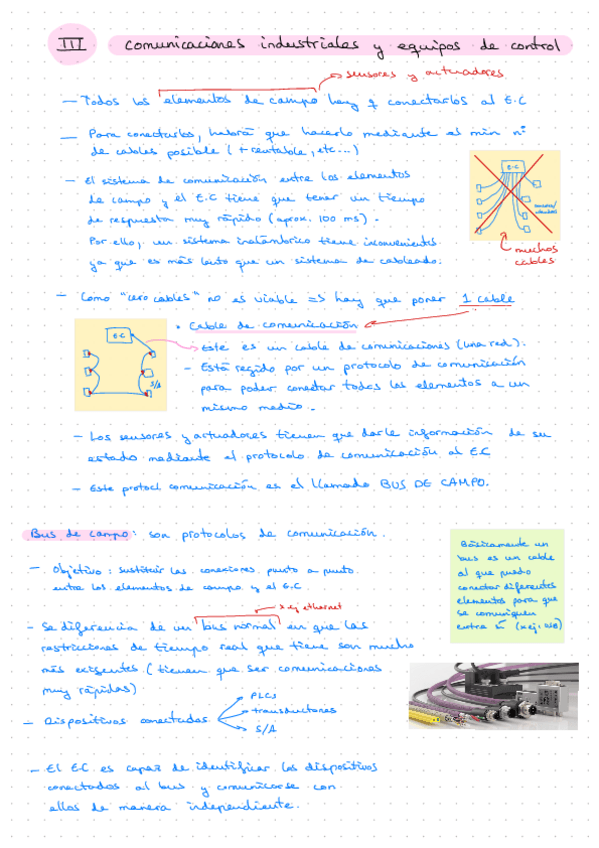 III comunicaciones industriales y equipos de control
sensores y actuadores
- Todos los elementos de campo hay q conectarlos al E.C
- Para conectarlos, habrá que hacerlo mediante el min nº
de cables posible (+ rentable, etc...)
- El sistema de comunicación entre los elementos
de campo y el E.C tiene que tener un tiempo
de respuesta muy rápido (aprox. 100 ms).
Por ello, un sistema inalámbrico tiene inconvenientes
ya que es más lento que un sistema de cableado.
E.C
muchos
cables
- Como "cero cables" no es viable => hay que poner 1 cable
E.C
S/A
• Cable de comunicación
Este es un cable de comunicaciones (una red).
- Está regido por un protocolo de comunicación
para poder conectar todos los elementos a un
mismo medio.
- Los sensores y actuadores tienen que darle información de su
estado mediante el protocolo de comunicación al E.C
- Este protocl comunicación es el llamado BUS DE CAMPO.
Bus de campo: son protocolos de comunicación.
- Objetivo: sustituir las conexiones punto a punto
entre los elementos de campo y el E.C.
Básicamente un
bus es un cable
al que puedo
conectar diferentes
elementos para que
se comuniquen
entre sí (x ej: USB)
x ej ethernet
- Se diferencia de un bus normal en que las
restricciones de tiempo real que tiene son mucho
más exigentes (tienen que ser comunicaciones
muy rápidas)
- Dispositivos conectados
PLCs
transductores
S/A
- El EC es capaz de identificar los dispositivos
conectados al bus y comunicarse con
ellos de manera independiente.